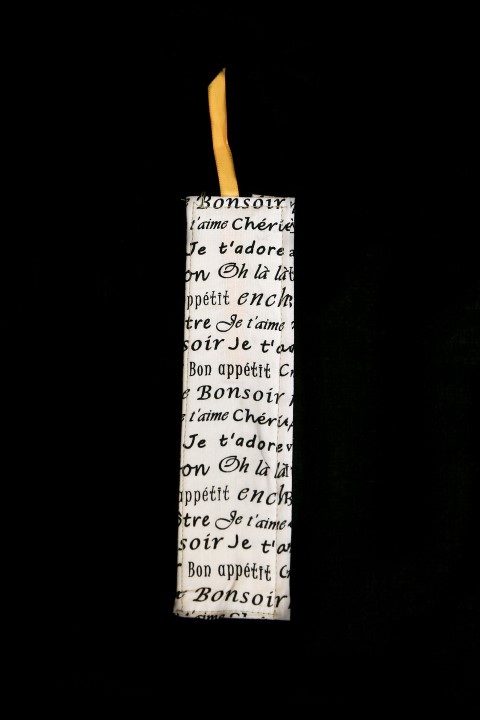 Bonsoir
t'aime Chérie
Je t'adore
on Oh là là
ppétit ench
tre Je t'aime
soir Je t'ad
Bon appétit C
Bonsoir
t'aime Chérie
Je t'adore
on Oh là là
appétit ench
ôtre Je t'aime
soir Je t'a
Bon appétit C
Bonsoir
t'aime